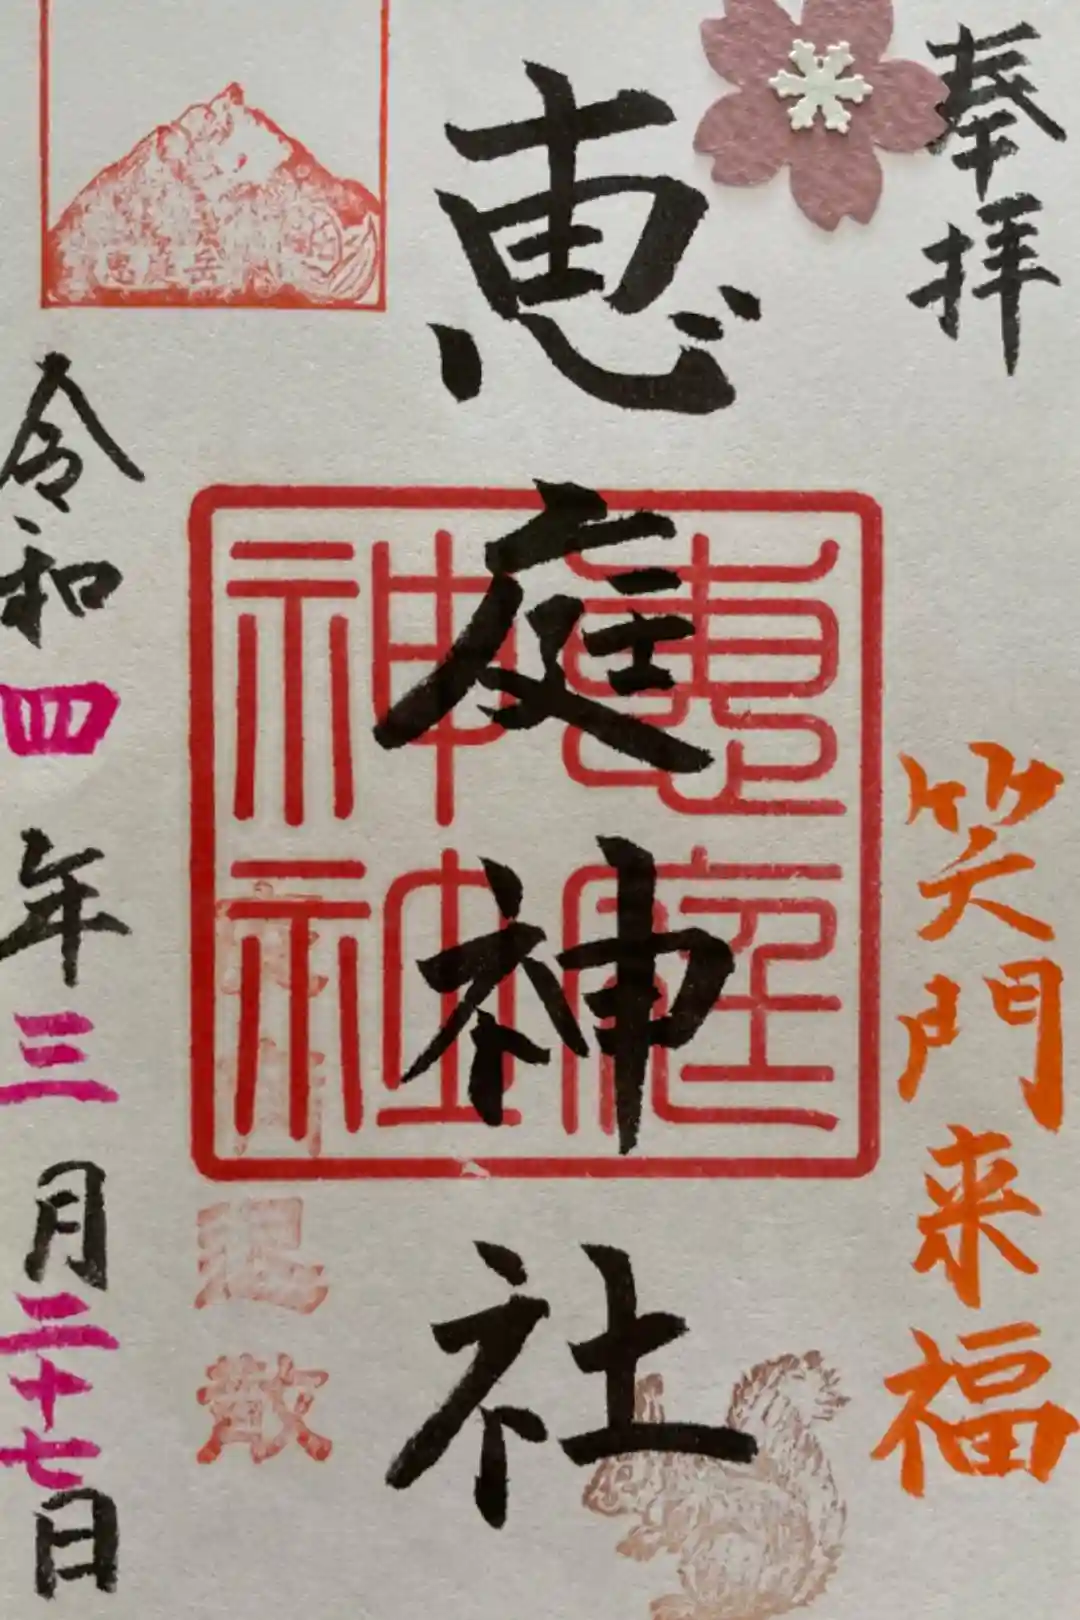 奉拝
笑門来福
恵庭神社
恵庭神社
恵庭岳
退散
令和四年三月二十七日